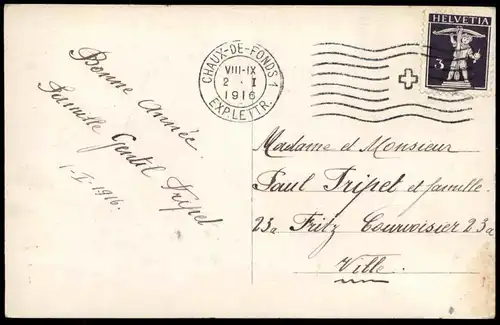 Bonne année.
Famille Gentil Tripet
1-I-1916.
CHAUX-DE-FONDS 1
VIII-IX
2 . I
1916
EXP. LETTR.
HELVETIA
3
Madame et Monsieur
Paul Tripet et famille
23a Fritz Courvoisier 23a
Ville.